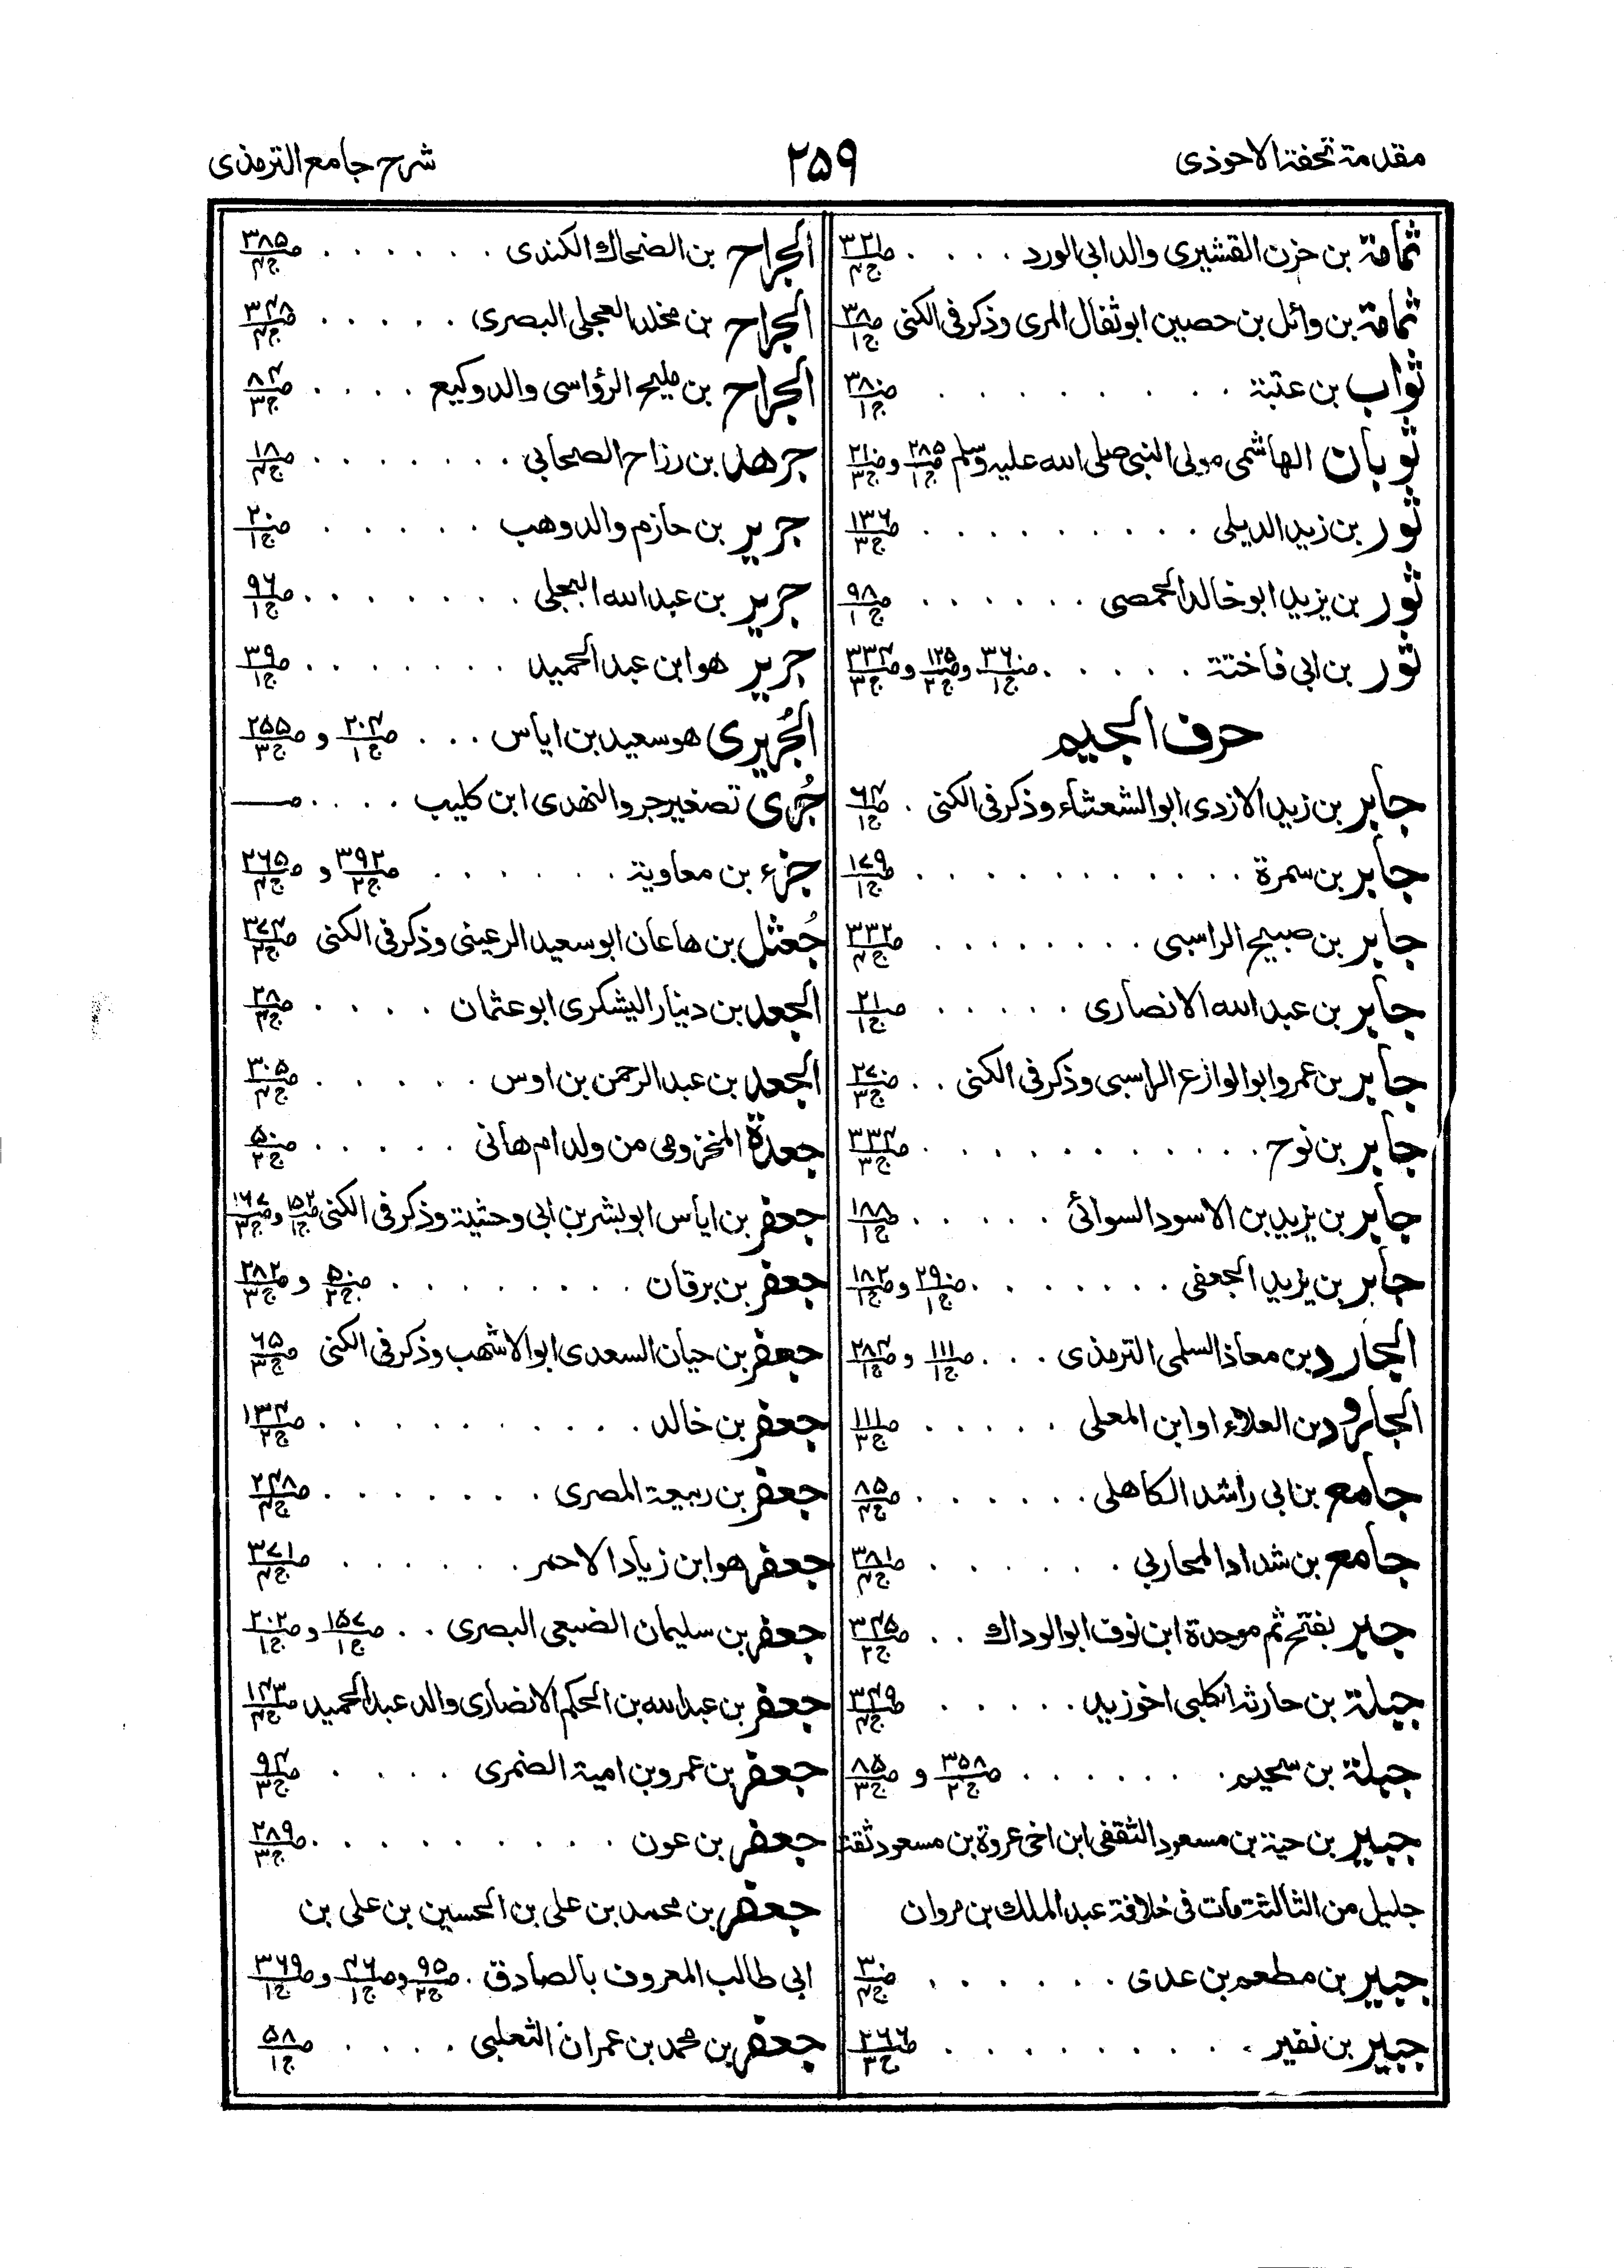 مقدمة تحفة الاحوذى
۲۵۹
شرح جامع الترمذى
ثمامة بن حزن القشيرى والد ابى الورد . . . . ص۳۲۱ ج۴
ثمامة بن وائل بن حصين ابو ثفال المرى وذكر فى الكنى ص۳۸ ج۱
ثواب بن عتبة . . . . . . . . ص۳۸۰ ج۱
ثوبان الهاشمى مولى النبى صلى الله عليه وسلم ص۲۸۵ ج۱ و ص۲۱۰ ج۳
ثور بن زيد الديلى . . . . . . . . ص۱۳۶ ج۳
ثور بن يزيد ابو خالد الحمصى . . . . . . ص۹۸ ج۱
ثور بن ابى فاختة . . . . . ص۳۶ ج۱ و ص۱۲۵ ج۲ و ص۳۳۴ ج۳
حرف الجيم
جابر بن زيد الازدى ابو الشعثاء وذكر فى الكنى . ص۶۴ ج۱
جابر بن سمرة . . . . . . . . . . ص۱۷۹ ج۱
جابر بن صبيح الراسبى . . . . . . . . ص۳۳۲ ج۴
جابر بن عبد الله الانصارى . . . . . ص۲۱ ج۱
جابر بن عمرو ابو الوازع الراسبى وذكر فى الكنى . . ص۲۷۰ ج۳
جابر بن نوح . . . . . . . . . . ص۳۳۴ ج۳
جابر بن يزيد بن الاسود السوائى . . . . . ص۱۸۸ ج۱
جابر بن يزيد الجعفى . . . . . . . ص۲۹ ج۱ و ص۱۸۲ ج۱
الجارد بن معاذ السلمى الترمذى . . . ص۱۱۱ ج۱ و ص۲۸۴ ج۱
الجارود بن العلاء او ابن المعلى . . . . . ص۱۱۱ ج۳
جامع بن ابى راشد الكاهلى . . . . . . ص۸۵ ج۴
جامع بن شداد المحاربى . . . . . . ص۳۸۱ ج۴
جبر بفتح ثم موحدة ابن نوف ابو الوداك . . ص۳۴۵ ج۲
جبلة بن حارثة الكلبى اخو زيد . . . . . ص۳۴۹ ج۴
جبلة بن سحيم . . . . . . ص۳۵۸ ج۲ و ص۸۵ ج۳
جبير بن حية بن مسعود الثقفى ابن اخى عروة بن مسعود ثقة
جليل من الثالثة مات فى خلافة عبد الملك بن مروان
جبير بن مطعم بن عدى . . . . . . ص۳۰ ج۴
جبير بن نفير . . . . . . . . . ص۲۶۶ ج۳
الجراح بن الضحاك الكندى . . . . . . ص۳۸۵ ج۴
الجراح بن مخلد العجلى البصرى . . . . . ص۳۴۸ ج۴
الجراح بن مليح الرؤاسى والد وكيع . . . . ص۸۴ ج۳
جرهد بن رزاح الصحابى . . . . . . . ص۱۸ ج۴
جرير بن حازم والد وهب . . . . . ص۲۰ ج۱
جرير بن عبد الله البجلى . . . . . . . ص۹۶ ج۱
جرير هو ابن عبد الحميد . . . . . . . ص۳۹ ج۱
الجُريرى هو سعيد بن اياس . . . ص۲۰۴ ج۱ و ص۲۵۵ ج۳
جُرى تصغير جرو النهدى ابن كليب . . . . ص
جزء بن معاوية . . . . . . ص۳۹۲ ج۲ و ص۲۶۵ ج۴
جُعثل بن هاعان ابو سعيد الرعينى وذكر فى الكنى ص۳۷۴ ج۲
الجعد بن دينار اليشكرى ابو عثمان . . . . ص۲۸
الجعد بن عبد الرحمن بن اوس . . . . . ص۳۰۵ ج۴
جعدة المخزومى من ولد ام هانى . . . . . ص۵۰ ج۲
جعفر بن اياس ابو بشر بن ابى وحشية وذكر فى الكنى ص۱۵۲ ج۱ و ص۱۶۷ ج۳
جعفر بن برقان . . . . . . . . ص۵۰ ج۲ و ص۲۸۲ ج۳
جعفر بن حيان السعدى ابو الاشهب وذكر فى الكنى ص۶۵ ج۳
جعفر بن خالد . . . . . . . . . ص۱۳۴ ج۲
جعفر بن ربيعة المصرى . . . . . . . ص۲۴۸ ج۴
جعفر هو ابن زياد الاحمر . . . . . . ص۳۷۱ ج۴
جعفر بن سليمان الضبعى البصرى . . ص۱۵۷ ج۱ و ص۲۰۲ ج۱
جعفر بن عبد الله بن الحكم الانصارى والد عبد الحميد ص۱۴۳ ج۴
جعفر بن عمرو بن امية الضمرى . . . . ص۹۴ ج۳
جعفر بن عون . . . . . . . . . ص۲۸۹ ج۳
جعفر بن محمد بن على بن الحسين بن على بن
ابى طالب المعروف بالصادق . ص۹۵ ج۲ و ص۴۶ ج۱ و ص۳۶۹ ج۱
جعفر بن محمد بن عمران الثعلبى . . . . ص۵۸ ج۱